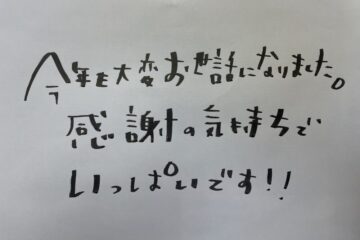 今年も大変お世話になりました。
感謝の気持ちで
いっぱいです!!